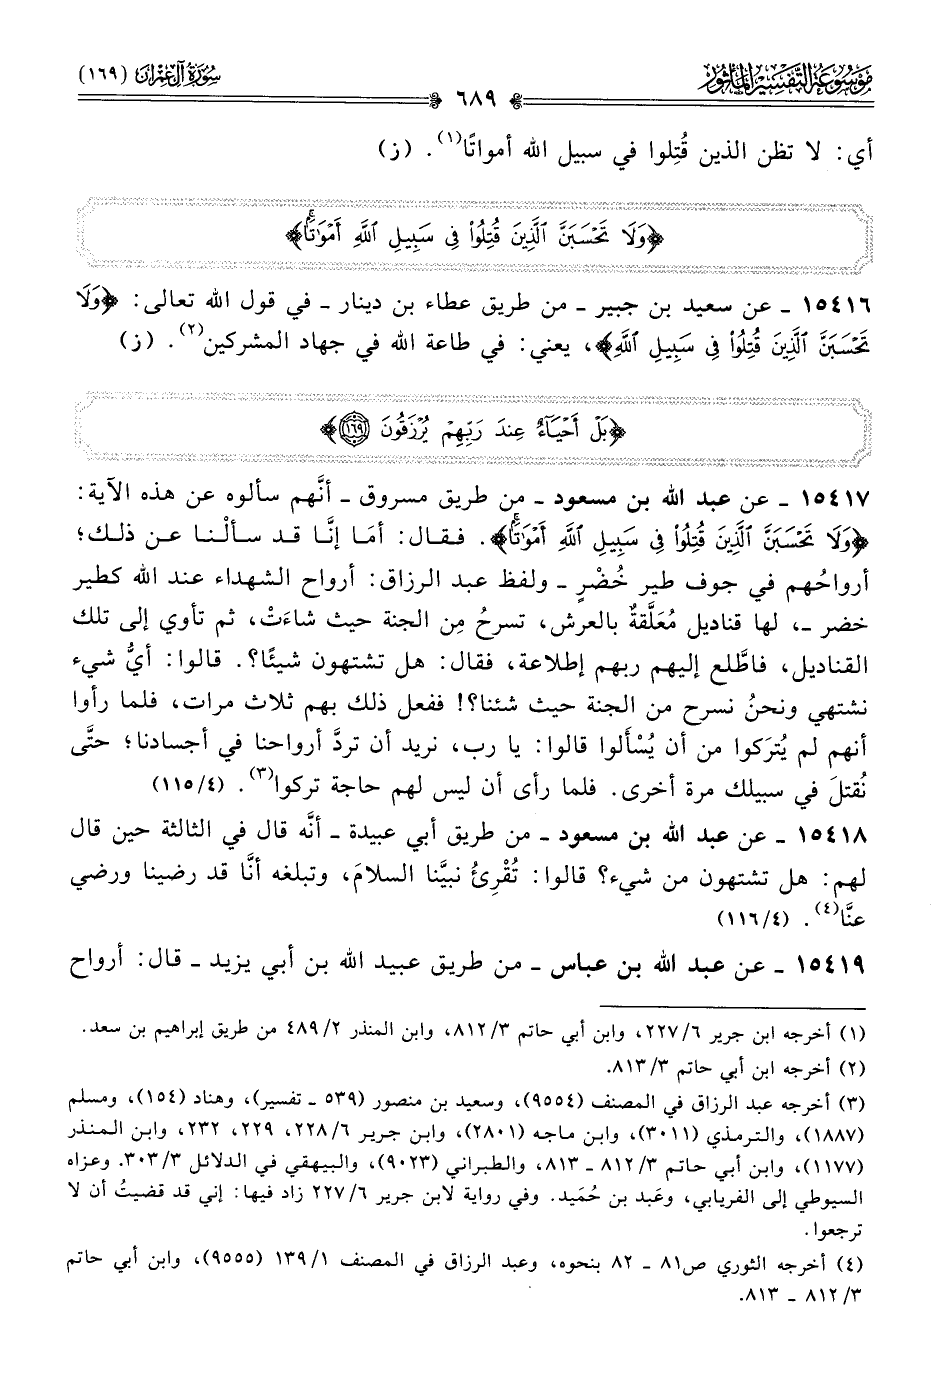 موسوعة التفسير المأثور
سورة آل عمران (١٦٩)
٦٨٩
أي: لا تظن الذين قُتِلوا في سبيل الله أمواتًا(١). (ز)
﴿وَلَا تَحْسَبَنَّ ٱلَّذِينَ قُتِلُوا۟ فِى سَبِيلِ ٱللَّهِ أَمْوَٰتًۢا﴾
١٥٤١٦ ـ عن سعيد بن جبير ـ من طريق عطاء بن دينار ـ في قول الله تعالى: ﴿وَلَا
تَحْسَبَنَّ ٱلَّذِينَ قُتِلُوا۟ فِى سَبِيلِ ٱللَّهِ﴾، يعني: في طاعة الله في جهاد المشركين(٢). (ز)
﴿بَلْ أَحْيَآءٌ عِندَ رَبِّهِمْ يُرْزَقُونَ ١٦٩﴾
١٥٤١٧ ـ عن عبد الله بن مسعود ـ من طريق مسروق ـ أنَّهم سألوه عن هذه الآية:
﴿وَلَا تَحْسَبَنَّ ٱلَّذِينَ قُتِلُوا۟ فِى سَبِيلِ ٱللَّهِ أَمْوَٰتًۢا﴾. فقال: أمَا إنَّا قد سألْنا عن ذلك؛
أرواحُهم في جوف طير خُضْرٍ ـ ولفظ عبد الرزاق: أرواح الشهداء عند الله كطير
خضر ـ، لها قناديل مُعَلَّقةٌ بالعرش، تسرحُ مِن الجنة حيث شاءَتْ، ثم تأوي إلى تلك
القناديل، فاطَّلع إليهم ربهم إطلاعة، فقال: هل تشتهون شيئًا؟. قالوا: أيُّ شيء
نشتهي ونحنُ نسرح من الجنة حيث شئنا؟! ففعل ذلك بهم ثلاث مرات، فلما رأوا
أنهم لم يُترَكوا من أن يُسْألوا قالوا: يا رب، نريد أن تردَّ أرواحنا في أجسادنا؛ حتَّى
نُقتلَ في سبيلك مرة أخرى. فلما رأى أن ليس لهم حاجة تركوا(٣). (١١٥/٤)
١٥٤١٨ ـ عن عبد الله بن مسعود ـ من طريق أبي عبيدة ـ أنَّه قال في الثالثة حين قال
لهم: هل تشتهون من شيء؟ قالوا: تُقْرِئُ نبيَّنا السلامَ، وتبلغه أنَّا قد رضينا ورضي
عنَّا(٤). (١١٦/٤)
١٥٤١٩ ـ عن عبد الله بن عباس ـ من طريق عبيد الله بن أبي يزيد ـ قال: أرواح
(١) أخرجه ابن جرير ٢٢٧/٦، وابن أبي حاتم ٨١٢/٣، وابن المنذر ٤٨٩/٢ من طريق إبراهيم بن سعد.
(٢) أخرجه ابن أبي حاتم ٨١٣/٣.
(٣) أخرجه عبد الرزاق في المصنف (٩٥٥٤)، وسعيد بن منصور (٥٣٩ ـ تفسير)، وهناد (١٥٤)، ومسلم
(١٨٨٧)، والترمذي (٣٠١١)، وابن ماجه (٢٨٠١)، وابن جرير ٢٢٨/٦، ٢٢٩، ٢٣٢، وابن المنذر
(١١٧٧)، وابن أبي حاتم ٨١٢/٣ ـ ٨١٣، والطبراني (٩٠٢٣)، والبيهقي في الدلائل ٣٠٣/٣. وعزاه
السيوطي إلى الفريابي، وعَبد بن حُمَيد. وفي رواية لابن جرير ٢٢٧/٦ زاد فيها: إني قد قضيتُ أن لا
ترجعوا.
(٤) أخرجه الثوري ص٨١ ـ ٨٢ بنحوه، وعبد الرزاق في المصنف ١٣٩/١ (٩٥٥٥)، وابن أبي حاتم
٨١٢/٣ ـ ٨١٣.